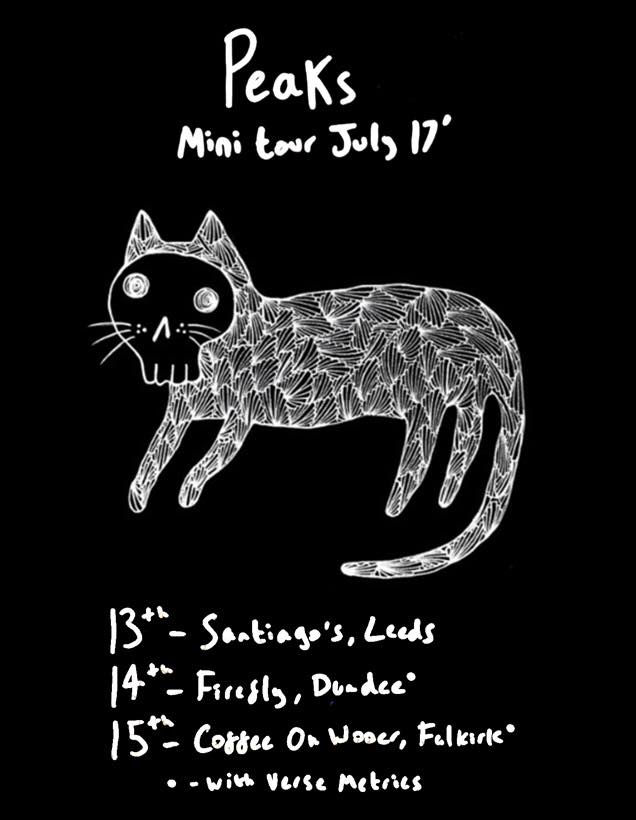 Peaks
Mini tour July 17'
13th - Santiago's, Leeds
14th - Firefly, Dundee•
15th - Coffee On Wooer, Falkirk•
• - with Verse Metrics